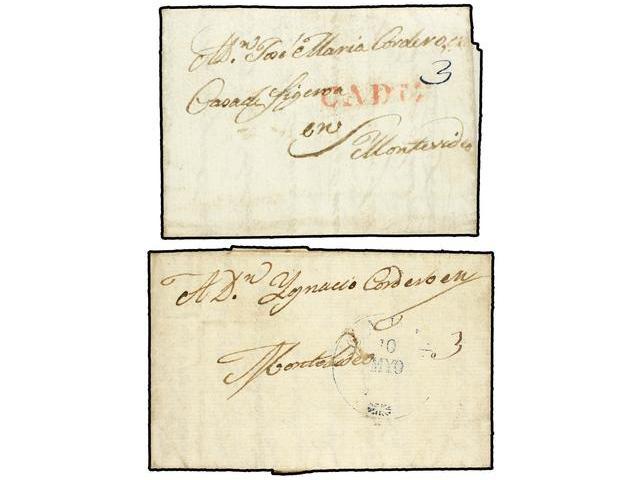 A Dn. José Maria Cordero, en
3
Casa de Figeroa
CADIZ
en
Montevideo
A Dn. Ygnacio Cordero en
3
10
MYO
Montevideo